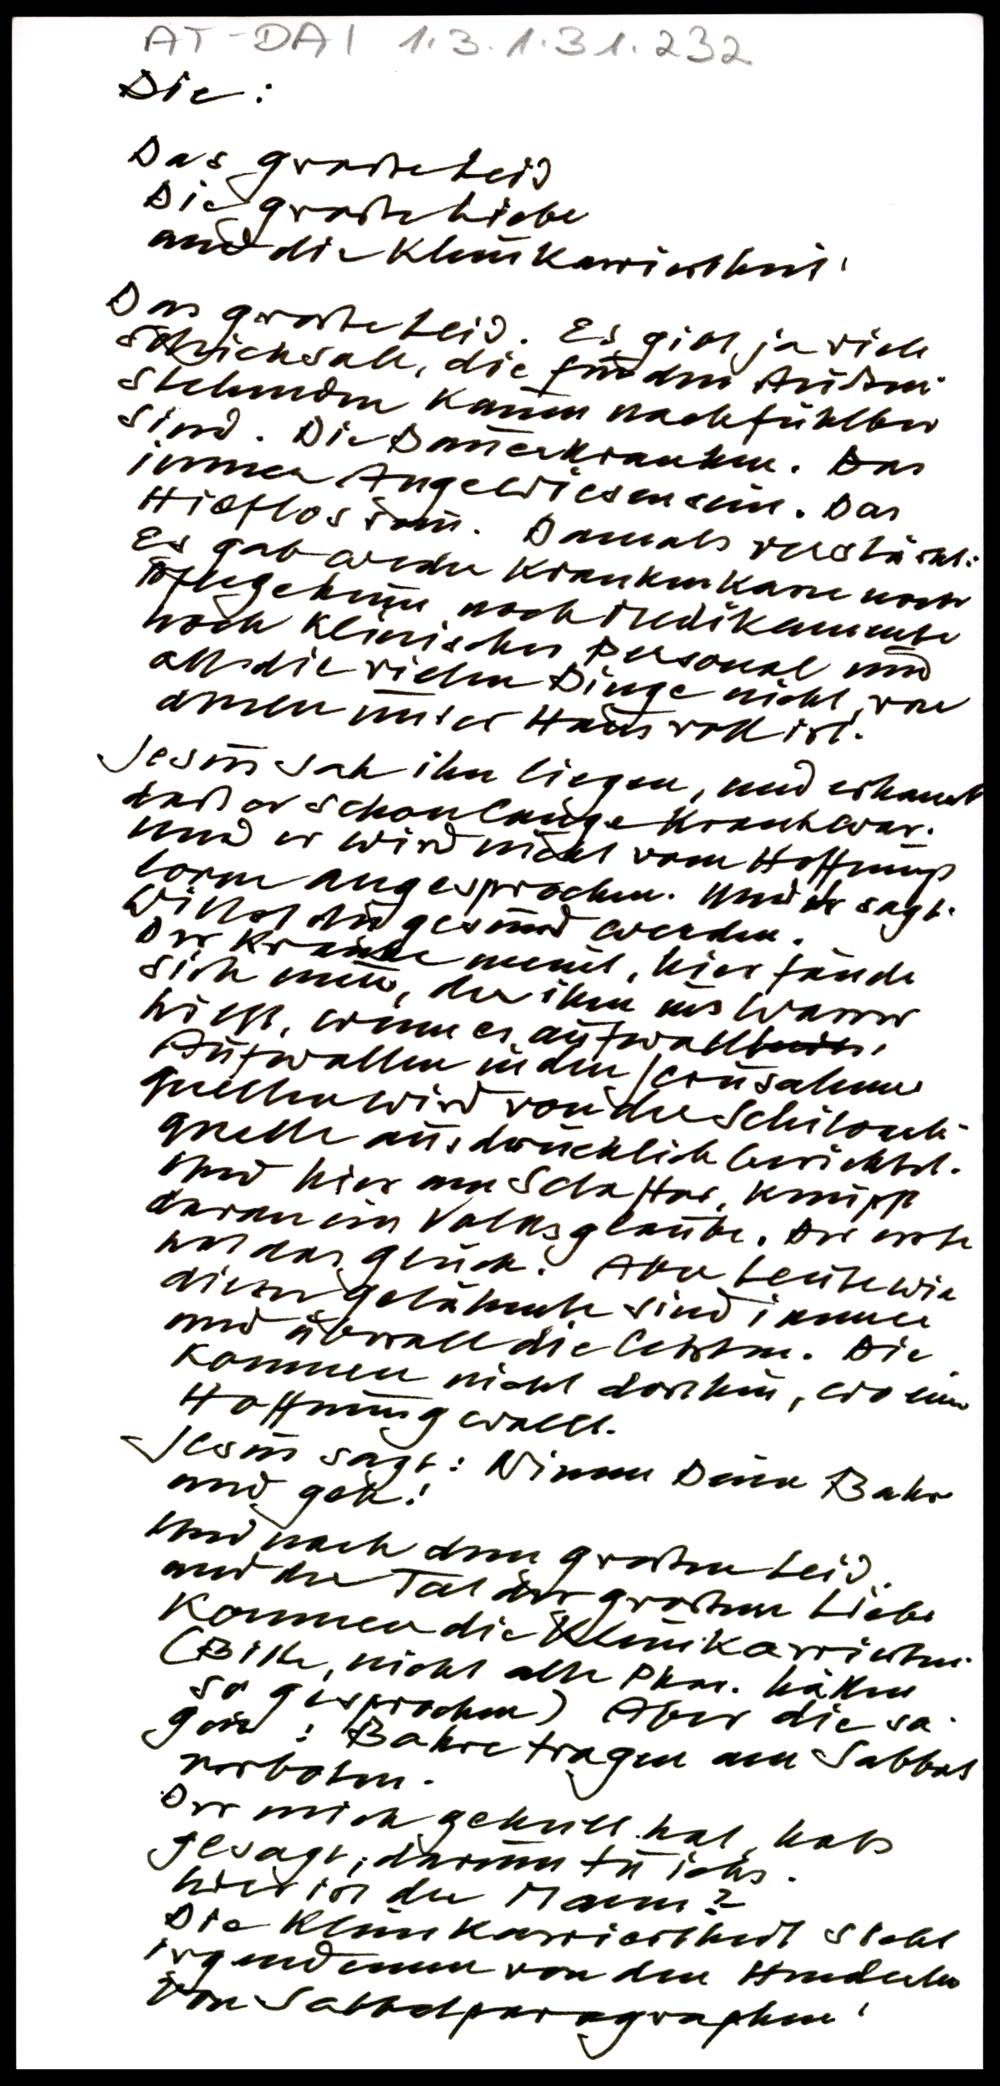 AT-DAI 1.3.1.31.232
Die:
Das große Leid
Die große Liebe
und die Kleinkariertheit!
Das große Leid. Es gibt ja viele
Schicksale, die für den Außen-
stehenden kaum nachfühlbar
sind. Die Dauerkranken. Das
immer Angewiesensein. Das
Hilflossein. Damals verstärkt:
Es gab weder Krankenkasse noch
Pflegeheime noch Medikamente
noch klinisches Personal und
all die vielen Dinge nicht, von
denen unser Haus voll ist.
Jesus sah ihn liegen, und erkannte
daß er schon lange krank war.
Und er wird nicht vom Hoffnungs
losen angesprochen. Und er sagt.
Willst du gesund werden.
Der Kranke meint, hier fände
sich einer, der ihm ins Wasser
hilft, wenn es aufwallt.
Aufwallen in den Jerusalemer
quellen wird von der Schiloach-
quelle ausdrücklich berichtet.
Und hier am Schaftor, knüpft
daran ein Volksglaube. Der erste
hat das Glück. Aber Leute wie
dieser gelähmte sind immer
und überall die letzten. Die
kommen nicht dorthin, wo eine
Hoffnung wallt.
Jesus sagt: Nimm Deine Bahre
und geh!
Und nach dem großen Leid
und der Tat der großen Liebe
kommen die Kleinkarierten.
(Bitte, nicht alle Phar. hätten
so gesprochen) Aber die sa-
gen: Bahre tragen am Sabbat
verboten.
Der mich geheilt hat, hats
gesagt; darum tu ichs.
Wer ist der Mann?
Die Kleinkariertheit sieht
irgendeinen von den Hunderten
von Sabbatparagraphen!